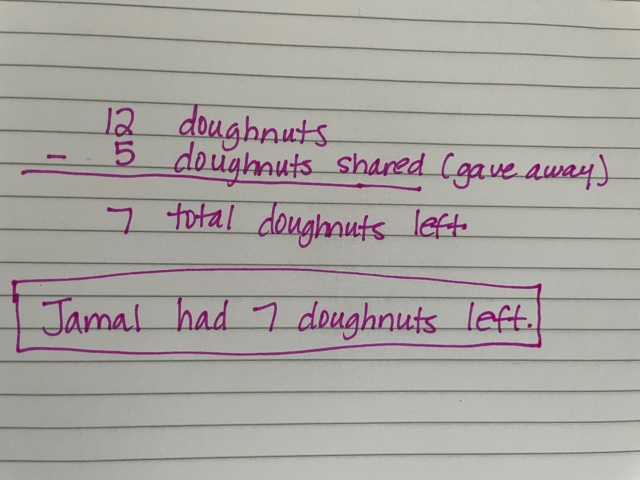 12 doughnuts
- 5 doughnuts shared (gave away)
7 total doughnuts left
Jamal had 7 doughnuts left.